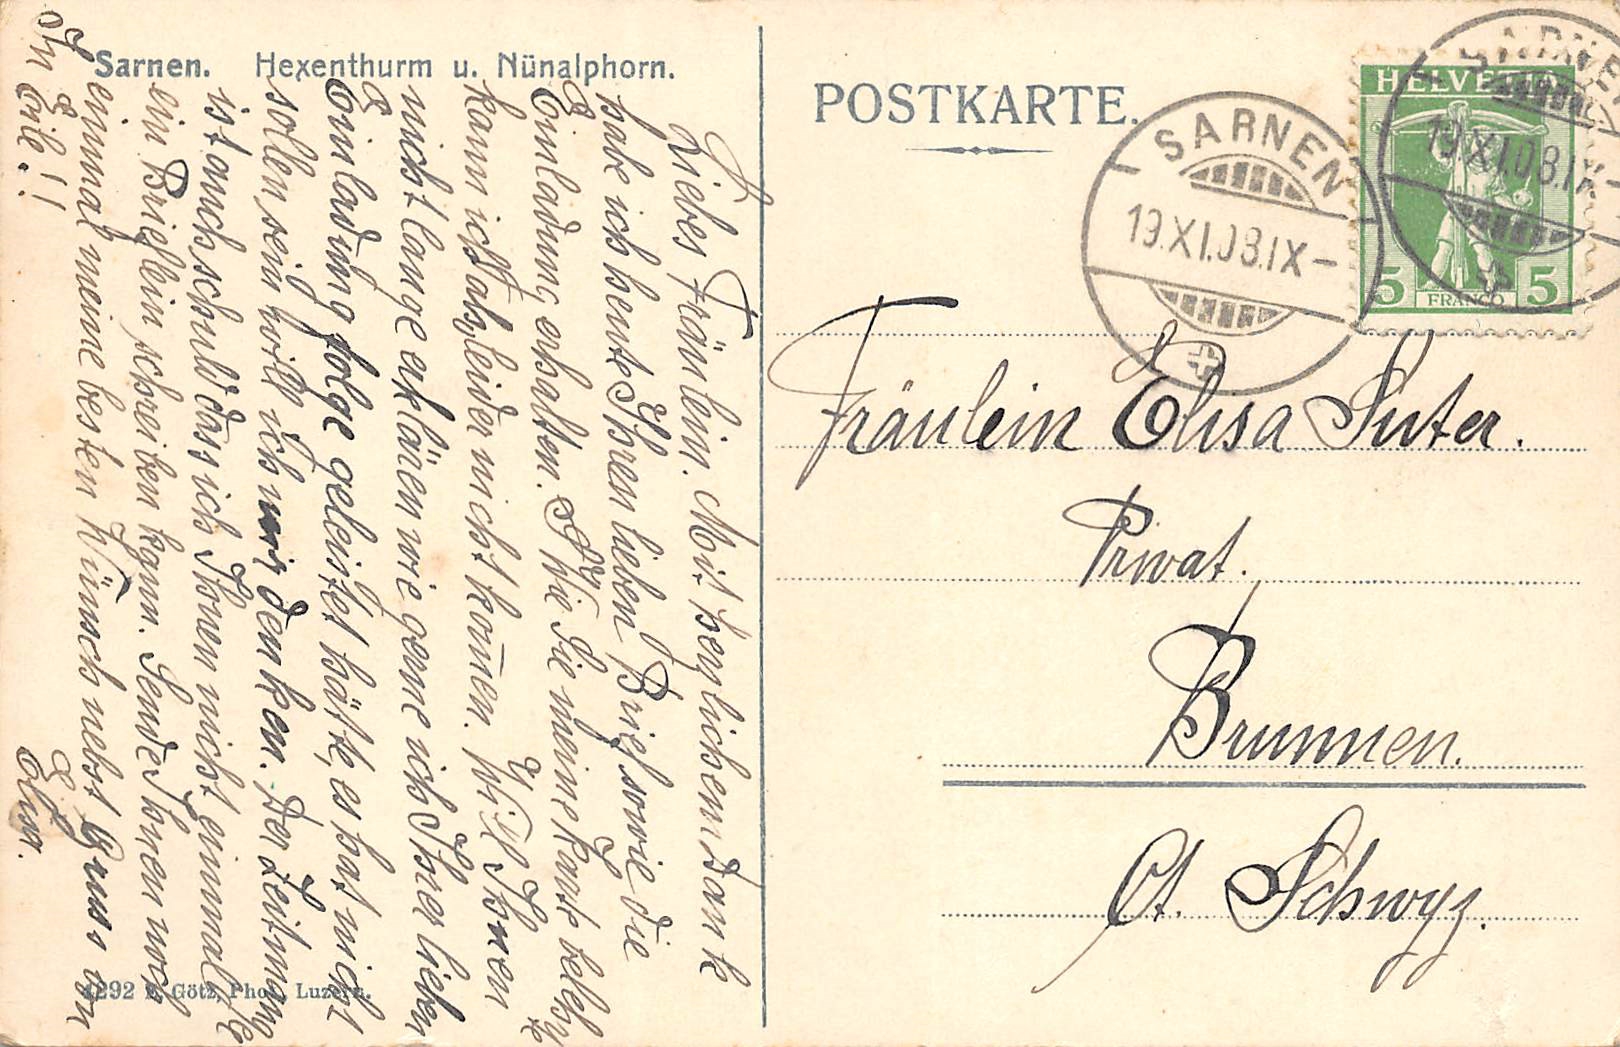 Sarnen. Hexenthurm u. Nünalphorn.
POSTKARTE.
HELVETIA
5 FRANCO 5
SARNEN
19.XI.08.IX-
SARNEN
19.XI.08.IX
Fräulein Elisa Suter.
Privat.
Brunnen.
Ct. Schwyz.
Liebes Fräulein. Mit herzlichem Dank
habe ich heute Ihren lieben Brief sowie die
Einladung erhalten. Wie Sie meine Karte belehrt
kann ich das leider nicht kom̄en. Will Ihnen
nicht lange erklären wie gerne ich Ihrer lieben
Einladung folge geleistet hätte, es hat nicht
sollen sein will ich mir denken. Der Zeitmang
ist auch schuld dass ich Ihnen nicht einmal
ein Brieflein schreiben kann. Sende Ihnen noch
einmal meine besten Wünsch nebst Gruss von
In Eile!! Elisa.
4292 E. Götz, Phot., Luzern.